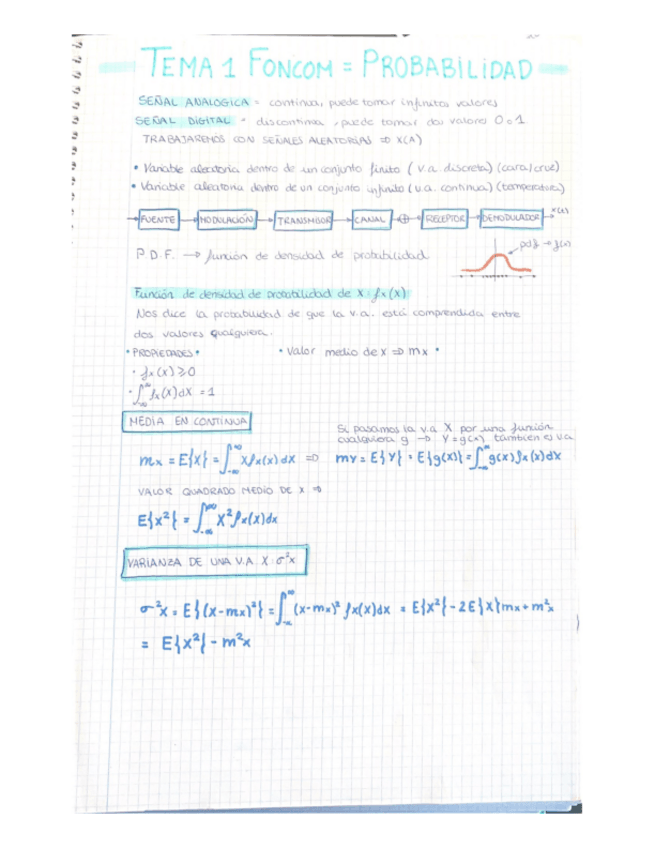 TEMA 1 FONCOM = PROBABILIDAD
SEÑAL ANALOGICA = continua, puede tomar infinitos valores
SEÑAL DIGITAL = discontinua, puede tomar dos valores 0 o 1
TRABAJAREMOS CON SEÑALES ALEATORIAS => X(A)
• Variable aleatoria dentro de un conjunto finito (v.a. discreta) (cara/cruz)
• Variable aleatoria dentro de un conjunto infinito (v.a. continua) (temperatura)
FUENTE → MODULACIÓN → TRANSMISOR → CANAL → ⊕ → RECEPTOR → DEMODULADOR
P.D.F. → función de densidad de probabilidad
pdf → f(x)
Función de densidad de probabilidad de X: fx(x)
Nos dice la probabilidad de que la v.a. está comprendida entre
dos valores cualquiera.
• PROPIEDADES • • Valor medio de x => mx •
· fx(x) ≥ 0
· ∫_{-∞}^{∞} fx(x)dx = 1
MEDIA EN CONTINUA
Si pasamos la v.a X por una función
cualquiera g → Y = g(x) también es v.a
mx = E{X} = ∫_{-∞}^{∞} x fx(x) dx => mY = E{Y} = E{g(x)} = ∫_{-∞}^{∞} g(x) fx(x) dx
VALOR QUADRADO MEDIO DE X =>
E{x²} = ∫_{-∞}^{∞} x² fx(x)dx
VARIANZA DE UNA V.A. X: σ²x
σ²x = E{(x-mx)²} = ∫_{-∞}^{∞} (x-mx)² fx(x)dx = E{x²} - 2E{x}mx + m²x
= E{x²} - m²x